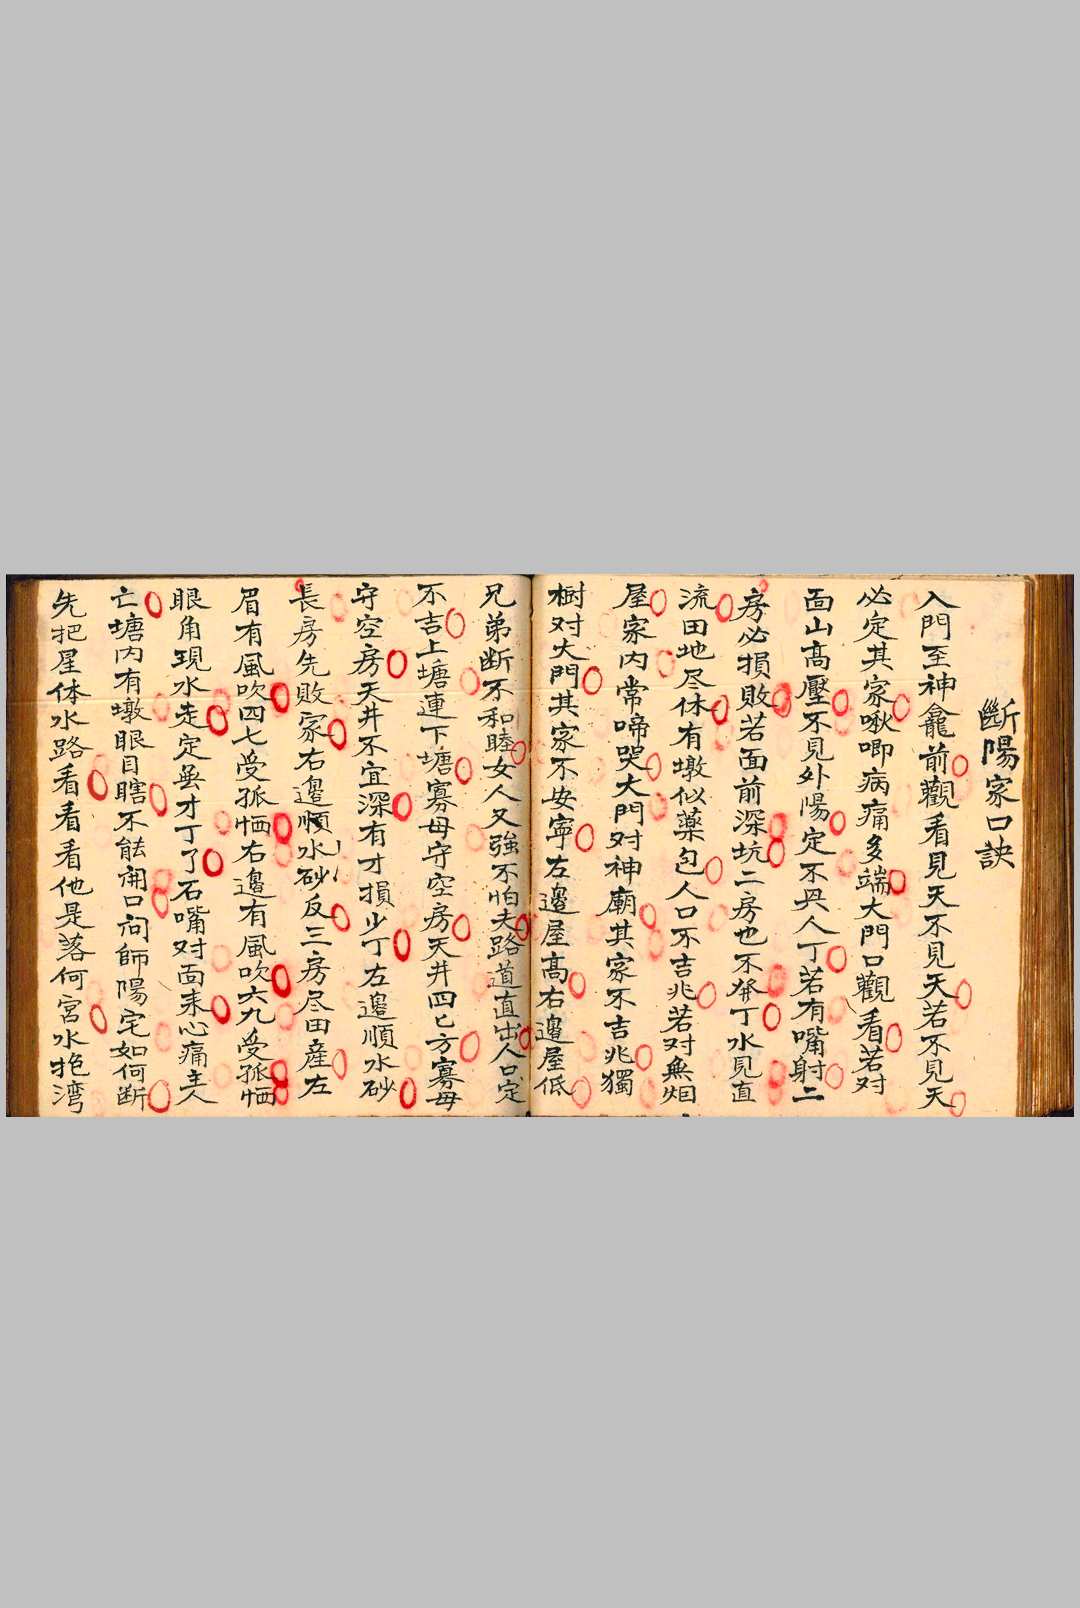 斷陽家口訣
入門至神龕前觀看見天不見天若不見天
必定其家啾唧病痛多端大門口觀看若对
面山高壓不見外陽定不具人丁若有嘴射二
房必損敗若面前深坑二房也不發丁水見直
流田地尽休有墩似藥包人口不吉兆若对無烟
屋家内常啼哭大門对神廟其家不吉兆獨
樹对大門其家不安寧左邊屋高右邊屋低
兄弟断不和睦女人又強不怕夫路道直出人口定
不吉上塘連下塘寡母守空房天井四匕方寡母
守空房天井不宜深有才損少丁左邊順水砂
長房先敗家右邊順水砂反三房尽田産左
眉有風吹四七受孤恓右邊有風吹六九受孤恓
眼角現水走定無才丁了石嘴对面来心痛主人
亡塘内有墩眼目瞎不能開口问師陽宅如何断
先把星体水路看看看他是落何宮水抱湾